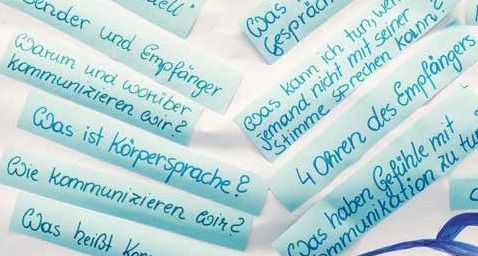 dell"
Sender und Empfänger
Warum und worüber
kommunizieren wir?
Was ist Körpersprache?
Wie kommunizieren wir?
Was heißt
Was
Gespräch
Was kann ich tun, wenn
jemand nicht mit seiner
Stimme sprechen kann?
4 Ohren des Empfängers
Was haben Gefühle mit
Kommunikation zu tun